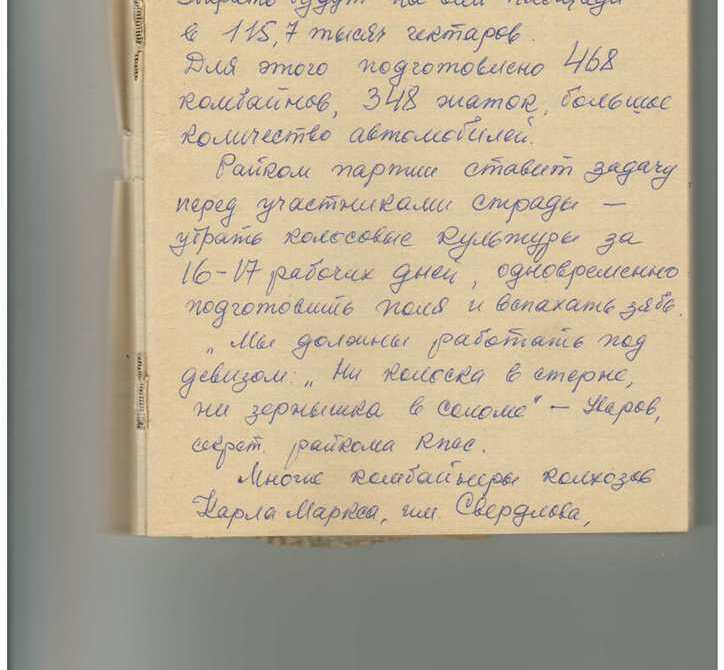 будут на всей площади
в 115,7 тысяч гектаров.
Для этого подготовлено 468
комбайнов, 348 жаток, большое
количество автомобилей.
Райком партии ставит задачу
перед участниками страды –
убрать колосовые культуры за
16-17 рабочих дней, одновременно
подготовить поля и вспахать зябь.
„Мы должны работать под
девизом: „Ни колоска в стерне,
ни зернышка в соломе" –
секрет. райкома КПСС.
Многие комбайнеры колхозов
Карла Маркса, им. Свердлова,